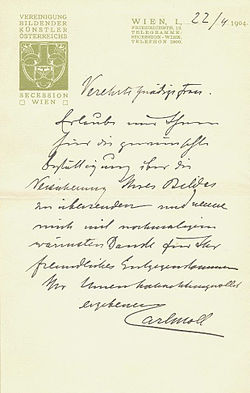 VEREINIGUNG
BILDENDER
KÜNSTLER
ÖSTERREICHS
SECESSION
WIEN
WIEN, I., 22/4 1904
FRIEDRICHSTR. 12.
TELEGRAMME:
SECESSION-WIEN.
TELEPHON
Verehrte gnädige Frau.
Erlaube mir Ihnen
hier die gewünschte
Bestätigung über die
Versicherung Ihres Bildes
zu übersenden und
mich mit nochmaligem
wärmsten Danke für Ihr
freundliches Entgegenkommen
Ihr hochachtungsvollst
ergebener
Carl Moll